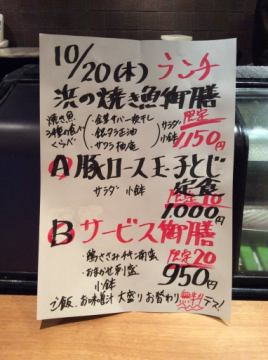 10/20(木) ランチ
浜の焼き魚御膳
焼き魚
3種の食べ
くらべ
・金華サバ一夜干し
・銀ダラ正油
・サワラ柚庵
サラダ
小鉢
限定
1150円
A 豚ロース玉子とじ
定食
サラダ 小鉢
限定10
1.000円
B サービス御膳
限定20
・鶏ささみ
・おまかせ刺盛
小鉢
950円
ご飯、お味噌汁 大盛り お替わり 無料デス!